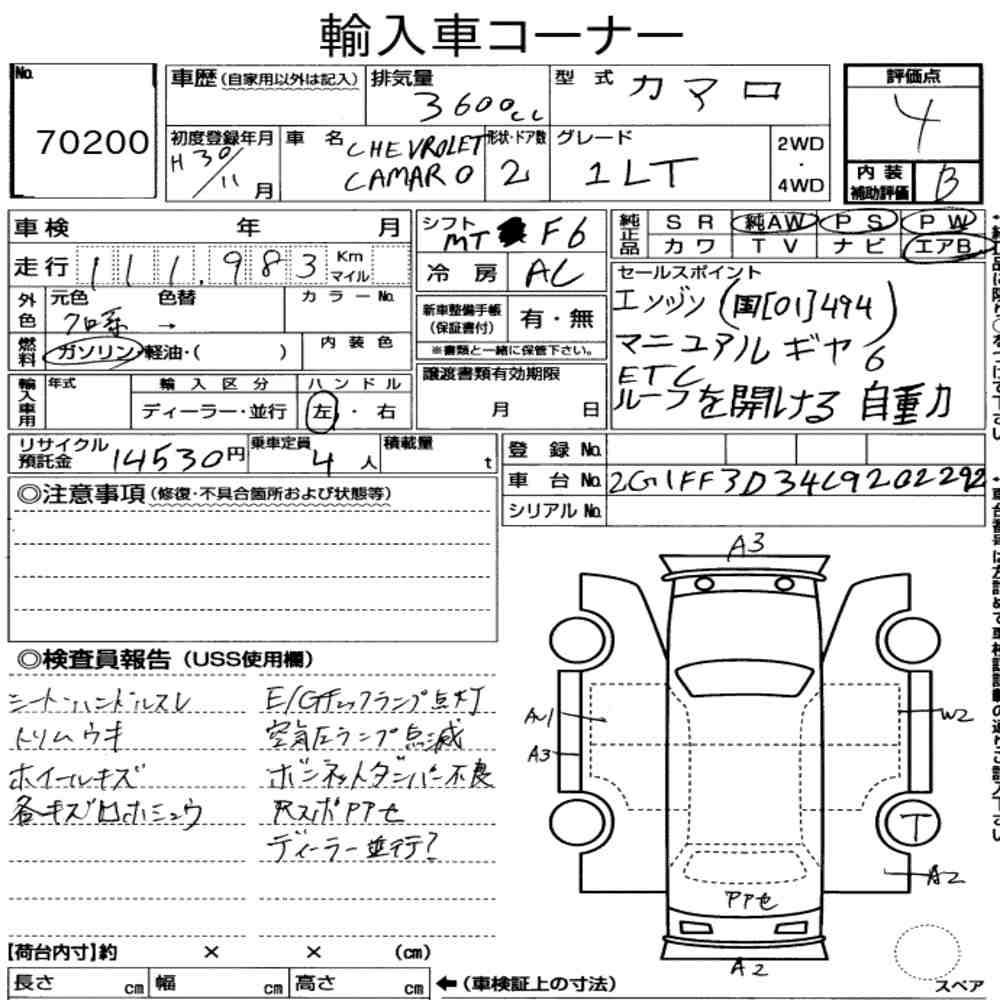 輸入車コーナー
No.
70200
車歴(自家用以外は記入)
排気量
3600cc
型式
カマロ
評価点
4
初度登録年月
H30/11月
車名
CHEVROLET
CAMARO
形状・ドア数
2
グレード
1LT
2WD
・
4WD
内装
補助評価
B
車検 年 月
走行 111,983 Km
マイル
外色
元色 色替 カラーNo.
クロ系 →
燃料
ガソリン・軽油・( )
内装色
輸入車用
年式
輸入区分
ディーラー・並行
ハンドル
左・右
シフト
MT F6
冷房 AC
新車整備手帳
(保証書付)
有・無
※書類と一緒に保管下さい。
譲渡書類有効期限
月 日
純正品
SR 純AW PS PW
カワ TV ナビ エアB
セールスポイント
エンジン(国[01]494)
マニュアルギヤ6
ETC
ルーフを開ける 自重力
リサイクル
預託金 14530円
乗車定員
4人
積載量
t
登録No.
車台No. 2G1FF3D34L9202292
シリアルNo.
◎注意事項(修復・不具合箇所および状態等)
◎検査員報告(USS使用欄)
シートハンドルスレ
トリムウキ
ホイールキズ
各キズ凹ホシュウ
E/Gチェックランプ点灯
空気圧ランプ点滅
ボンネットダンパー不良
RスポPPセ
ディーラー並行?
A3
AU1
A3
W2
T
A2
PPセ
A2
スペア
【荷台内寸】約 × × (cm)
長さ cm 幅 cm 高さ cm
←(車検証上の寸法)